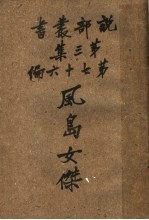 說部叢書
第三集
第七十六編
風島女傑